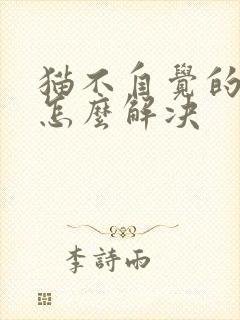 猫不自覺的
怎麼解決
李詩雨